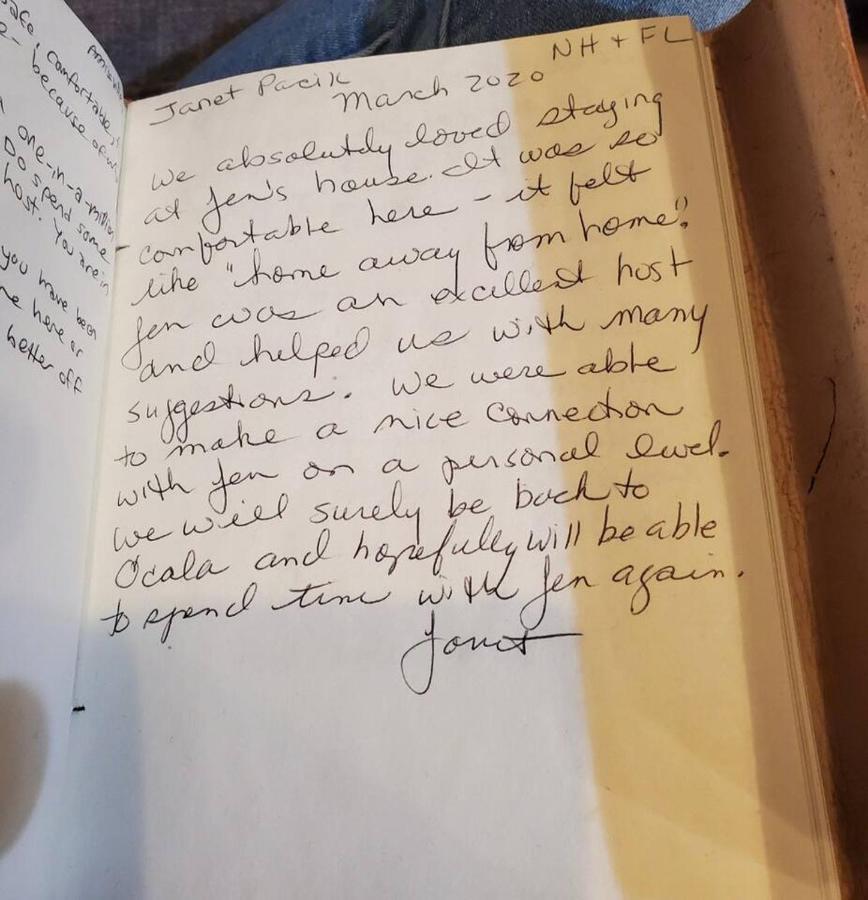 ace, comfortable,
because of
one-in-a-million
Do spend some
host. You are in
you have been
here or
better off
Janet Pacik NH + FL
March 2020
We absolutely loved staying
at Jen's house. It was so
comfortable here - it felt
like "home away from home".
Jen was an excellent host
and helped us with many
suggestions. We were able
to make a nice connection
with Jen on a personal level.
We will surely be back to
Ocala and hopefully will be able
to spend time with Jen again.
Janet